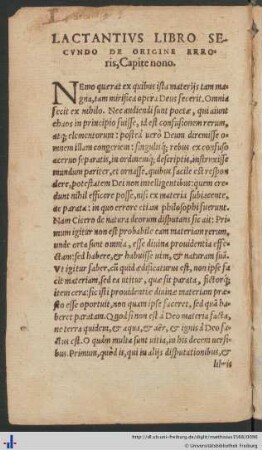 LACTANTIVS LIBRO SE-
CVNDO DE ORIGINE ERRO-
ris, Capite nono.
NEmo quærat ex quibus ista materijs tam ma-
gna, tam mirifica opera Deus fecerit. Omnia
fecit ex nihilo. Nec audiendi sunt poëtæ, qui aiunt
chaos in principio fuisse, id est confusionem rerum,
atq; elementorum: postea uerò Deum diremisse o-
mnem illam congeriem: singulisq; rebus ex confuso
aceruo separatis, in ordinemq; descriptis, instruxisse
mundum pariter, et ornasse, quibus facile est respon-
dere, potestatem Dei non intelligentibus: quem cre-
dunt nihil efficere posse, nisi ex materia subiacente,
ac parata: in quo errore etiam philosophi fuerunt.
Nam Cicero de natura deorum disputans sic ait: Pri-
mum igitur non est probabile eam materiam rerum,
unde orta sunt omnia, esse diuina prouidentia effe-
ctam: sed habere, & habuisse uim, & naturam suã.
Vt igitur faber, cũ quid ædificaturus est, non ipse fa-
cit materiam, sed ea utitur, quæ sit parata, fictorq;
item cera: sic isti prouidentiæ diuinæ materiam præ-
sto esse oportuit, non quam ipse faceret, sed quã ha-
beret paratam. Quod si non est à Deo materia facta,
ne terra quidem, & aqua, & aër, & ignis à Deo fa-
ctus est. O quàm multa sunt uitia, in his decem uer-
sibus. Primum, quòd is, qui in alijs disputationibus, &
lib-is
http://dl.ub.uni-freiburg.de/diglit/matthiolus1568/0090
© Universitätsbibliothek Freiburg